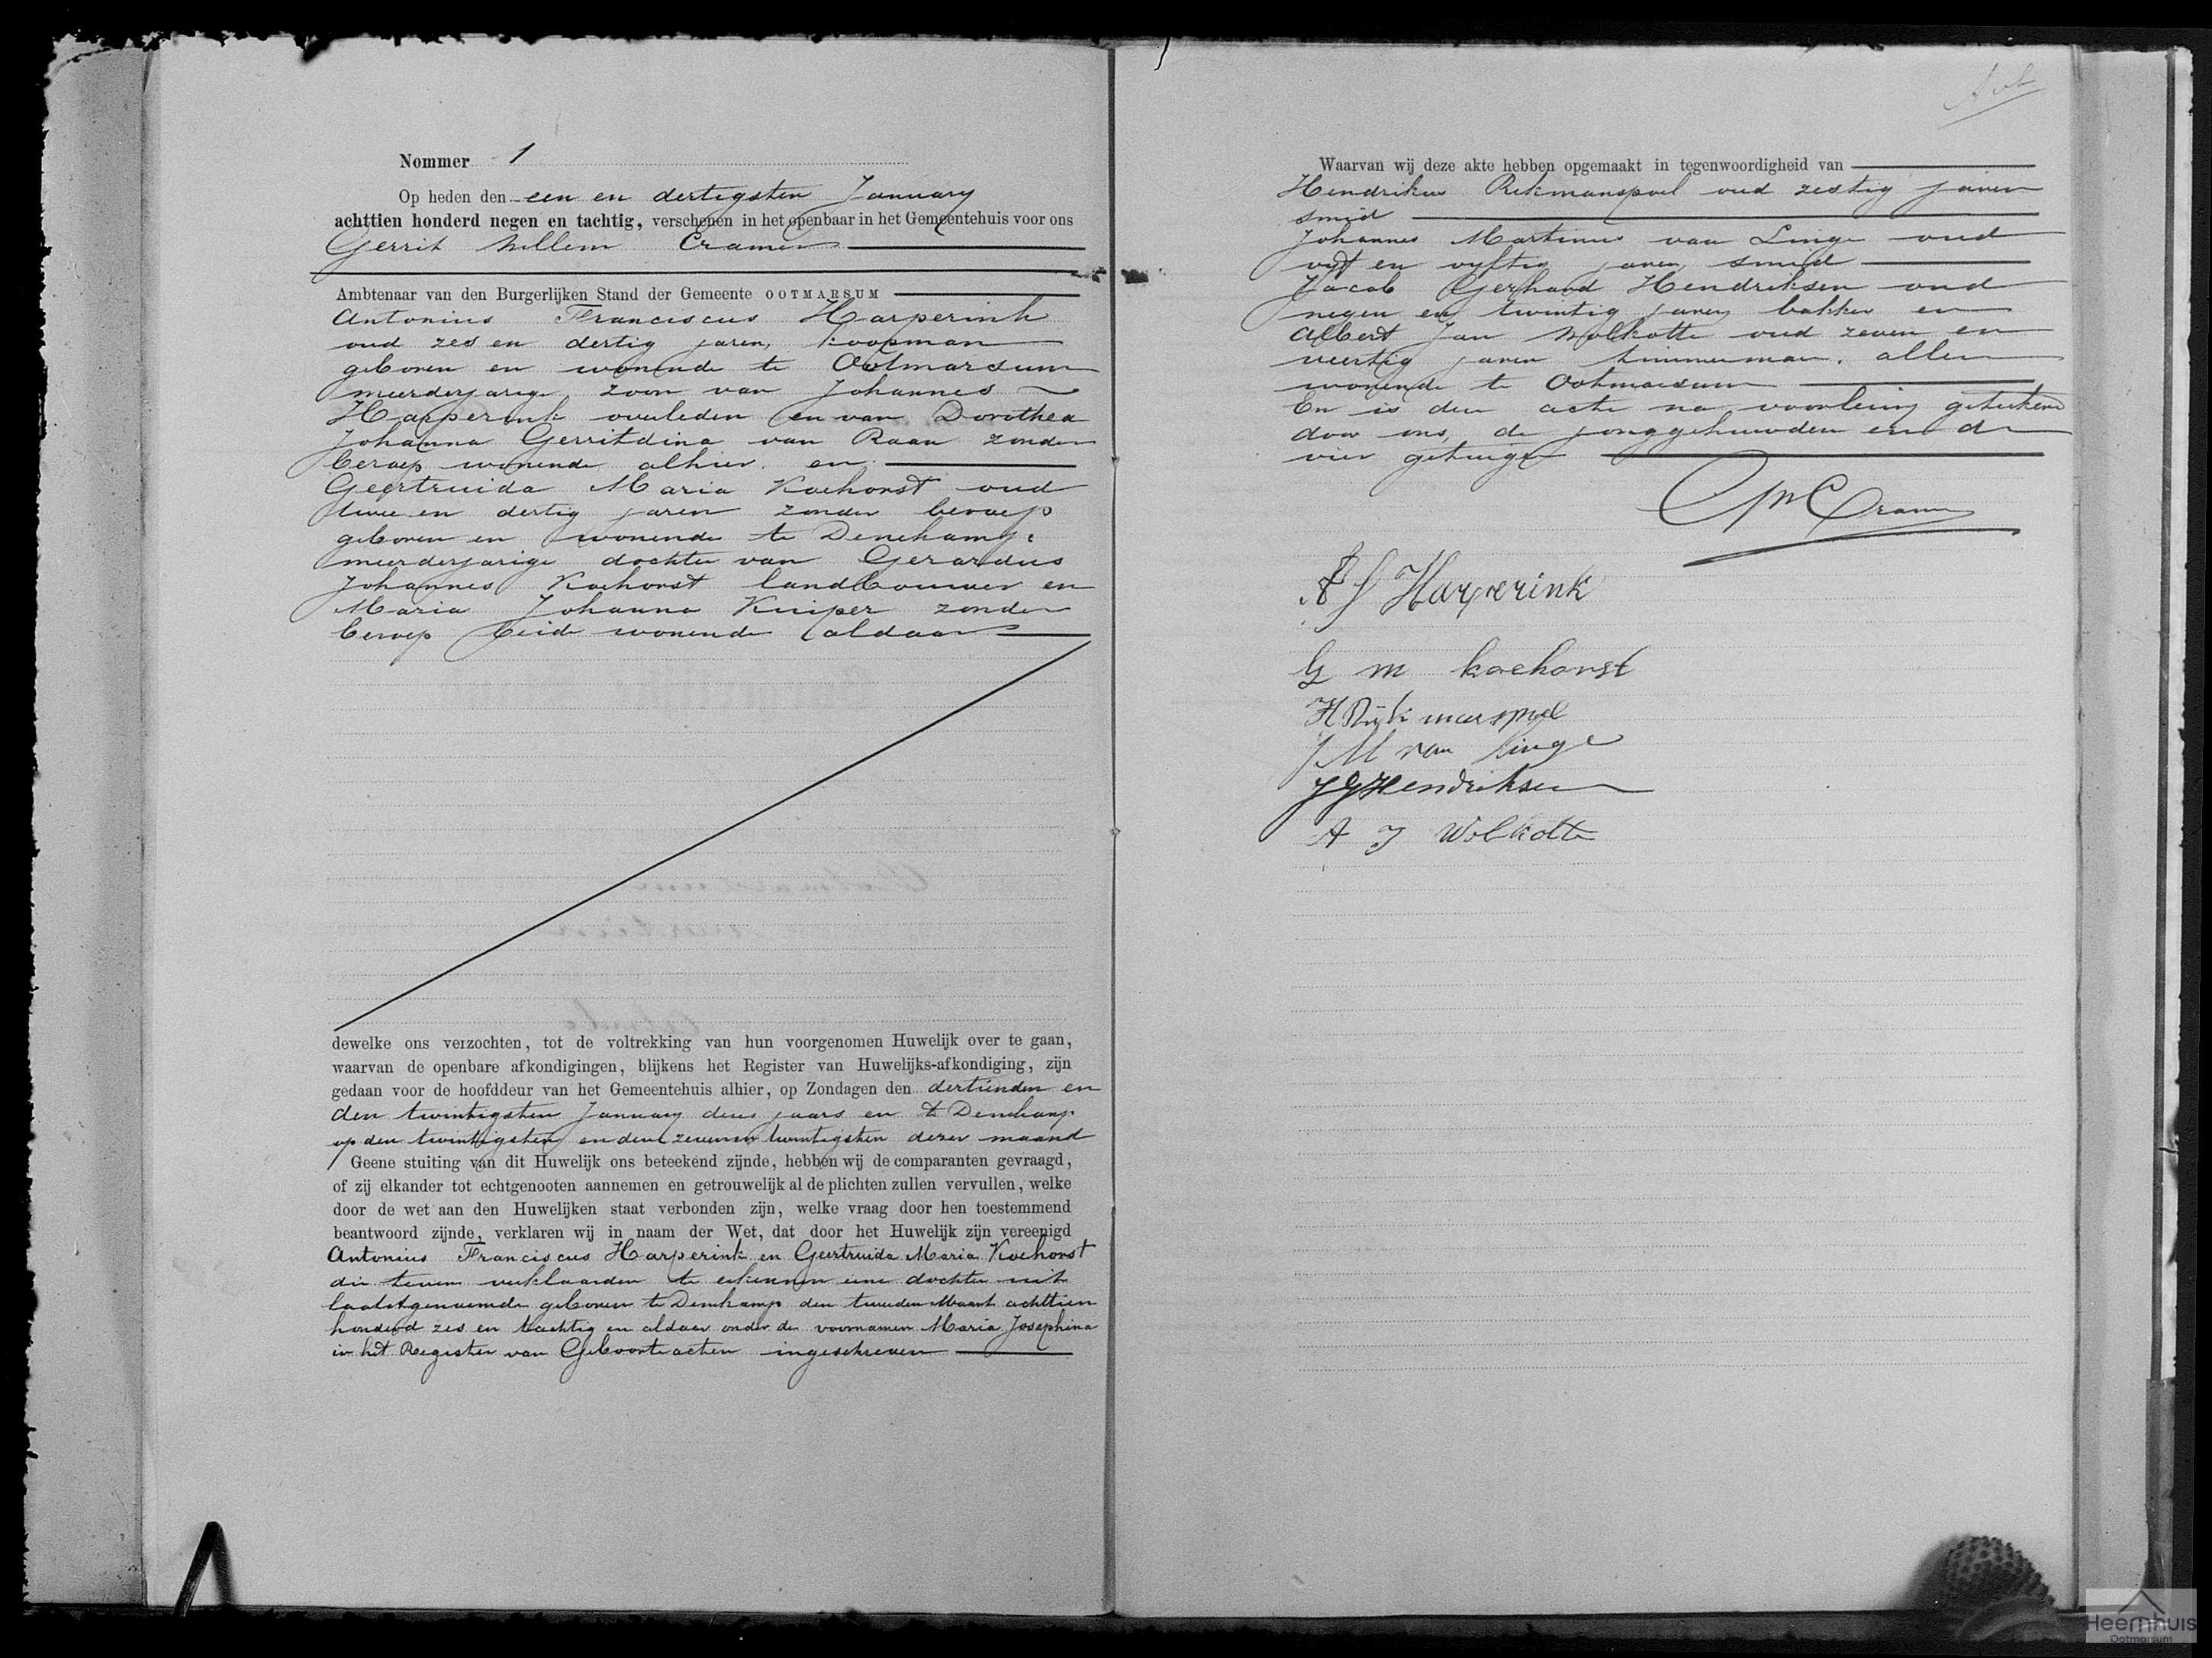 Nommer 1
Op heden den een en dertigsten January
achttien honderd negen en tachtig, verschenen in het openbaar in het Gemeentehuis voor ons
Gerrit Willem Cramer
Ambtenaar van den Burgerlijken Stand der Gemeente OOTMARSUM
Antonius Franciscus Harperink
oud zes en dertig jaren, koopman
geboren en wonende te Ootmarsum
meerderjarige zoon van Johannes
Harperink overleden en van Dorothea
Johanna Gerritdina van Raan zonder
beroep wonende alhier en
Geertruida Maria Koehorst oud
twee en dertig jaren zonder beroep
geboren en wonende te Denekamp
meerderjarige dochter van Gerardus
Johannes Koehorst landbouwer en
Maria Johanna Kuiper zonder
beroep beide wonende aldaar
dewelke ons verzochten, tot de voltrekking van hun voorgenomen Huwelijk over te gaan,
waarvan de openbare afkondigingen, blijkens het Register van Huwelijks-afkondiging, zijn
gedaan voor de hoofddeur van het Gemeentehuis alhier, op Zondagen den dertienden en
den twintigsten January dezes jaars en te Denekamp
op den twintigsten en den zeven en twintigsten dezer maand
Geene stuiting van dit Huwelijk ons beteekend zijnde, hebben wij de comparanten gevraagd,
of zij elkander tot echtgenooten aannemen en getrouwelijk al de plichten zullen vervullen, welke
door de wet aan den Huwelijken staat verbonden zijn, welke vraag door hen toestemmend
beantwoord zijnde, verklaren wij in naam der Wet, dat door het Huwelijk zijn vereenigd
Antonius Franciscus Harperink en Geertruida Maria Koehorst
die tevens verklaarden te erkennen eene dochter uit
laatstgenoemde geboren te Denekamp den tweeden Maart achttien
honderd zes en tachtig en aldaar onder de voornamen Maria Josephina
in het Register van Geboorteacten ingeschreven
Waarvan wij deze akte hebben opgemaakt in tegenwoordigheid van
Hendrikus Rekmanspoel oud zestig jaren
smid
Johannes Martinus van Linge oud
vyf en vyftig jaren, smid
Jacob Gerhard Hendriksen oud
negen en twintig jaren bakker en
Albert Jan Wolkotte oud zeven en
veertig jaren timmerman, allen
wonende te Ootmarsum
En is deze acte na voorlezing geteekend
door ons, de jonggehuwden en de
vier getuigen
GWCramer
A F Harperink
G M koehorst
J M van Linge
J G Hendriksen
A J Wolkotte
Heernhuis
Ootmarsum